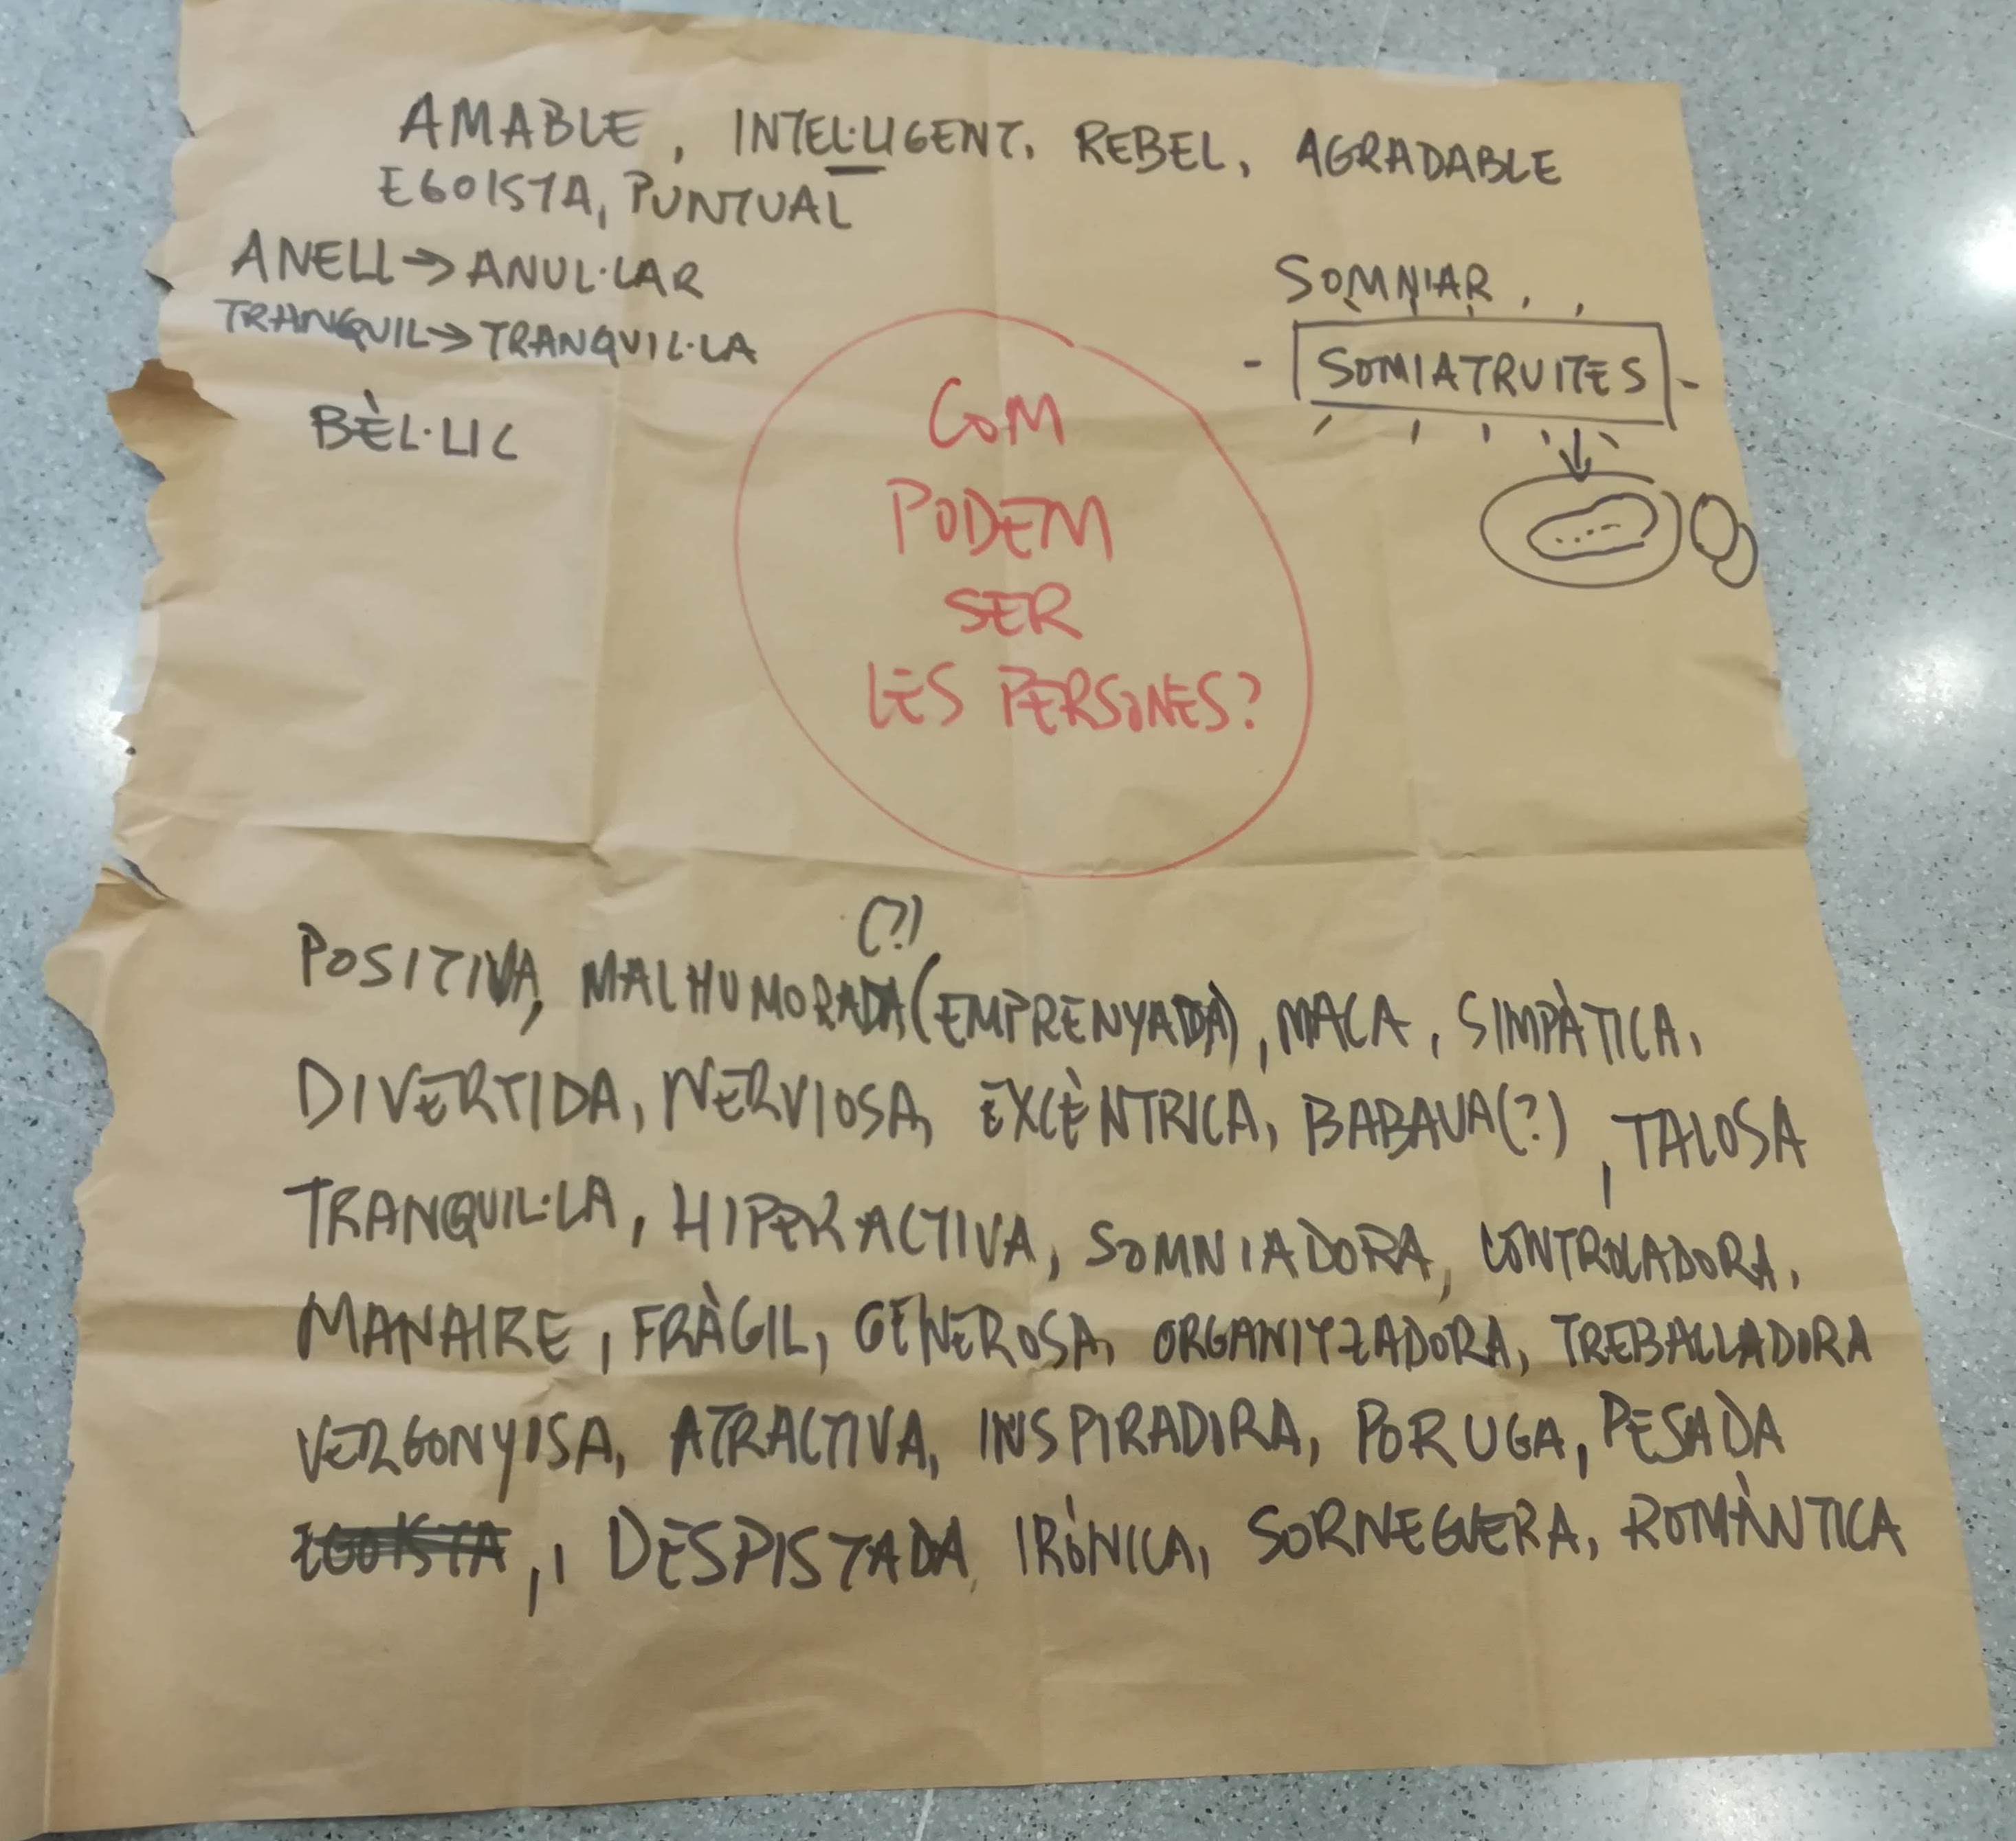 AMABLE, INTEL·LIGENT, REBEL, AGRADABLE
EGOISTA, PUNTUAL
ANELL → ANUL·LAR
TRANQUIL → TRANQUIL·LA
BÈL·LIC
SOMNIAR
SOMIATRUITES
COM
PODEM
SER
LES PERSONES?
(?)
POSITIVA, MALHUMORADA (EMPRENYADA), MACA, SIMPÀTICA,
DIVERTIDA, NERVIOSA, EXCÈNTRICA, BABAUA(?), TALOSA
TRANQUIL·LA, HIPERACTIVA, SOMNIADORA, CONTROLADORA,
MANAIRE, FRÀGIL, GENEROSA, ORGANITZADORA, TREBALLADORA
VERGONYOSA, ATRACTIVA, INSPIRADORA, PORUGA, PESADA
EGOISTA, , DESPISTADA, IRÒNICA, SORNEGUERA, ROMÀNTICA